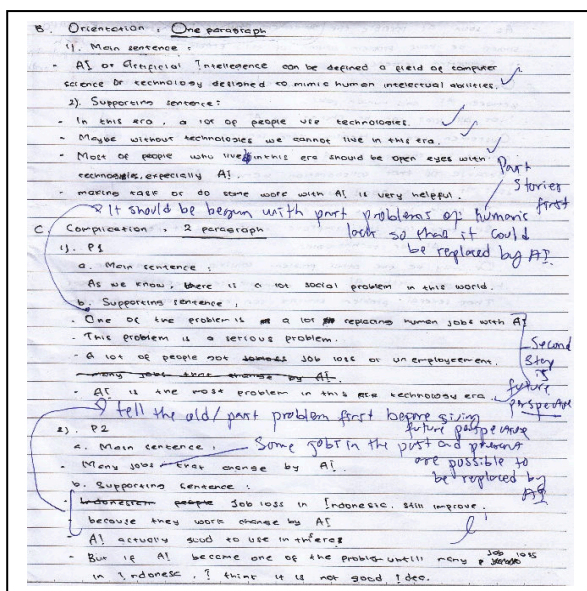 B. Orientation : One paragraph
1). Main sentence :
- AI or Artificial Intellegence can be defined a field of computer
science or technology designed to mimic human intelectual abilities.
2). Supporting sentence :
- In this era, a lot of people use technologies.
- Maybe without technologies we cannot live in this era.
- Most of people who live in this era should be open eyes with
technologies, especially AI.
Past
Stories
first
- making task or do some work with AI is very helpful.
It should be begun with past problems of humanis
lack so that it could
be replaced by AI.
C Complication : 2 paragraph
1). P1
a. Main sentence :
As we know, there is a lot social problem in this world.
b. Supporting sentence :
- One of the problem is a lot replacing human jobs with AI
- This problem is a serious problem.
- A lot of people got job loss or unemployeement.
many jobs that change by AI.
- AI is the most problem in this era technology era.
Second
Story
is
future
perspective
tell the old/past problem first before giving
future perspective
2). P2
a. Main sentence
Some jobs in the past and present
are possible to
be replaced by
AI
- Many jobs that change by AI.
b. Supporting sentence :
- Indonesian people Job loss in Indonesia still improve.
because they work change by AI
AI actually good to use in
- But if AI become one of the problem untill many job loss
in Indonesi, I think it is not good idea.